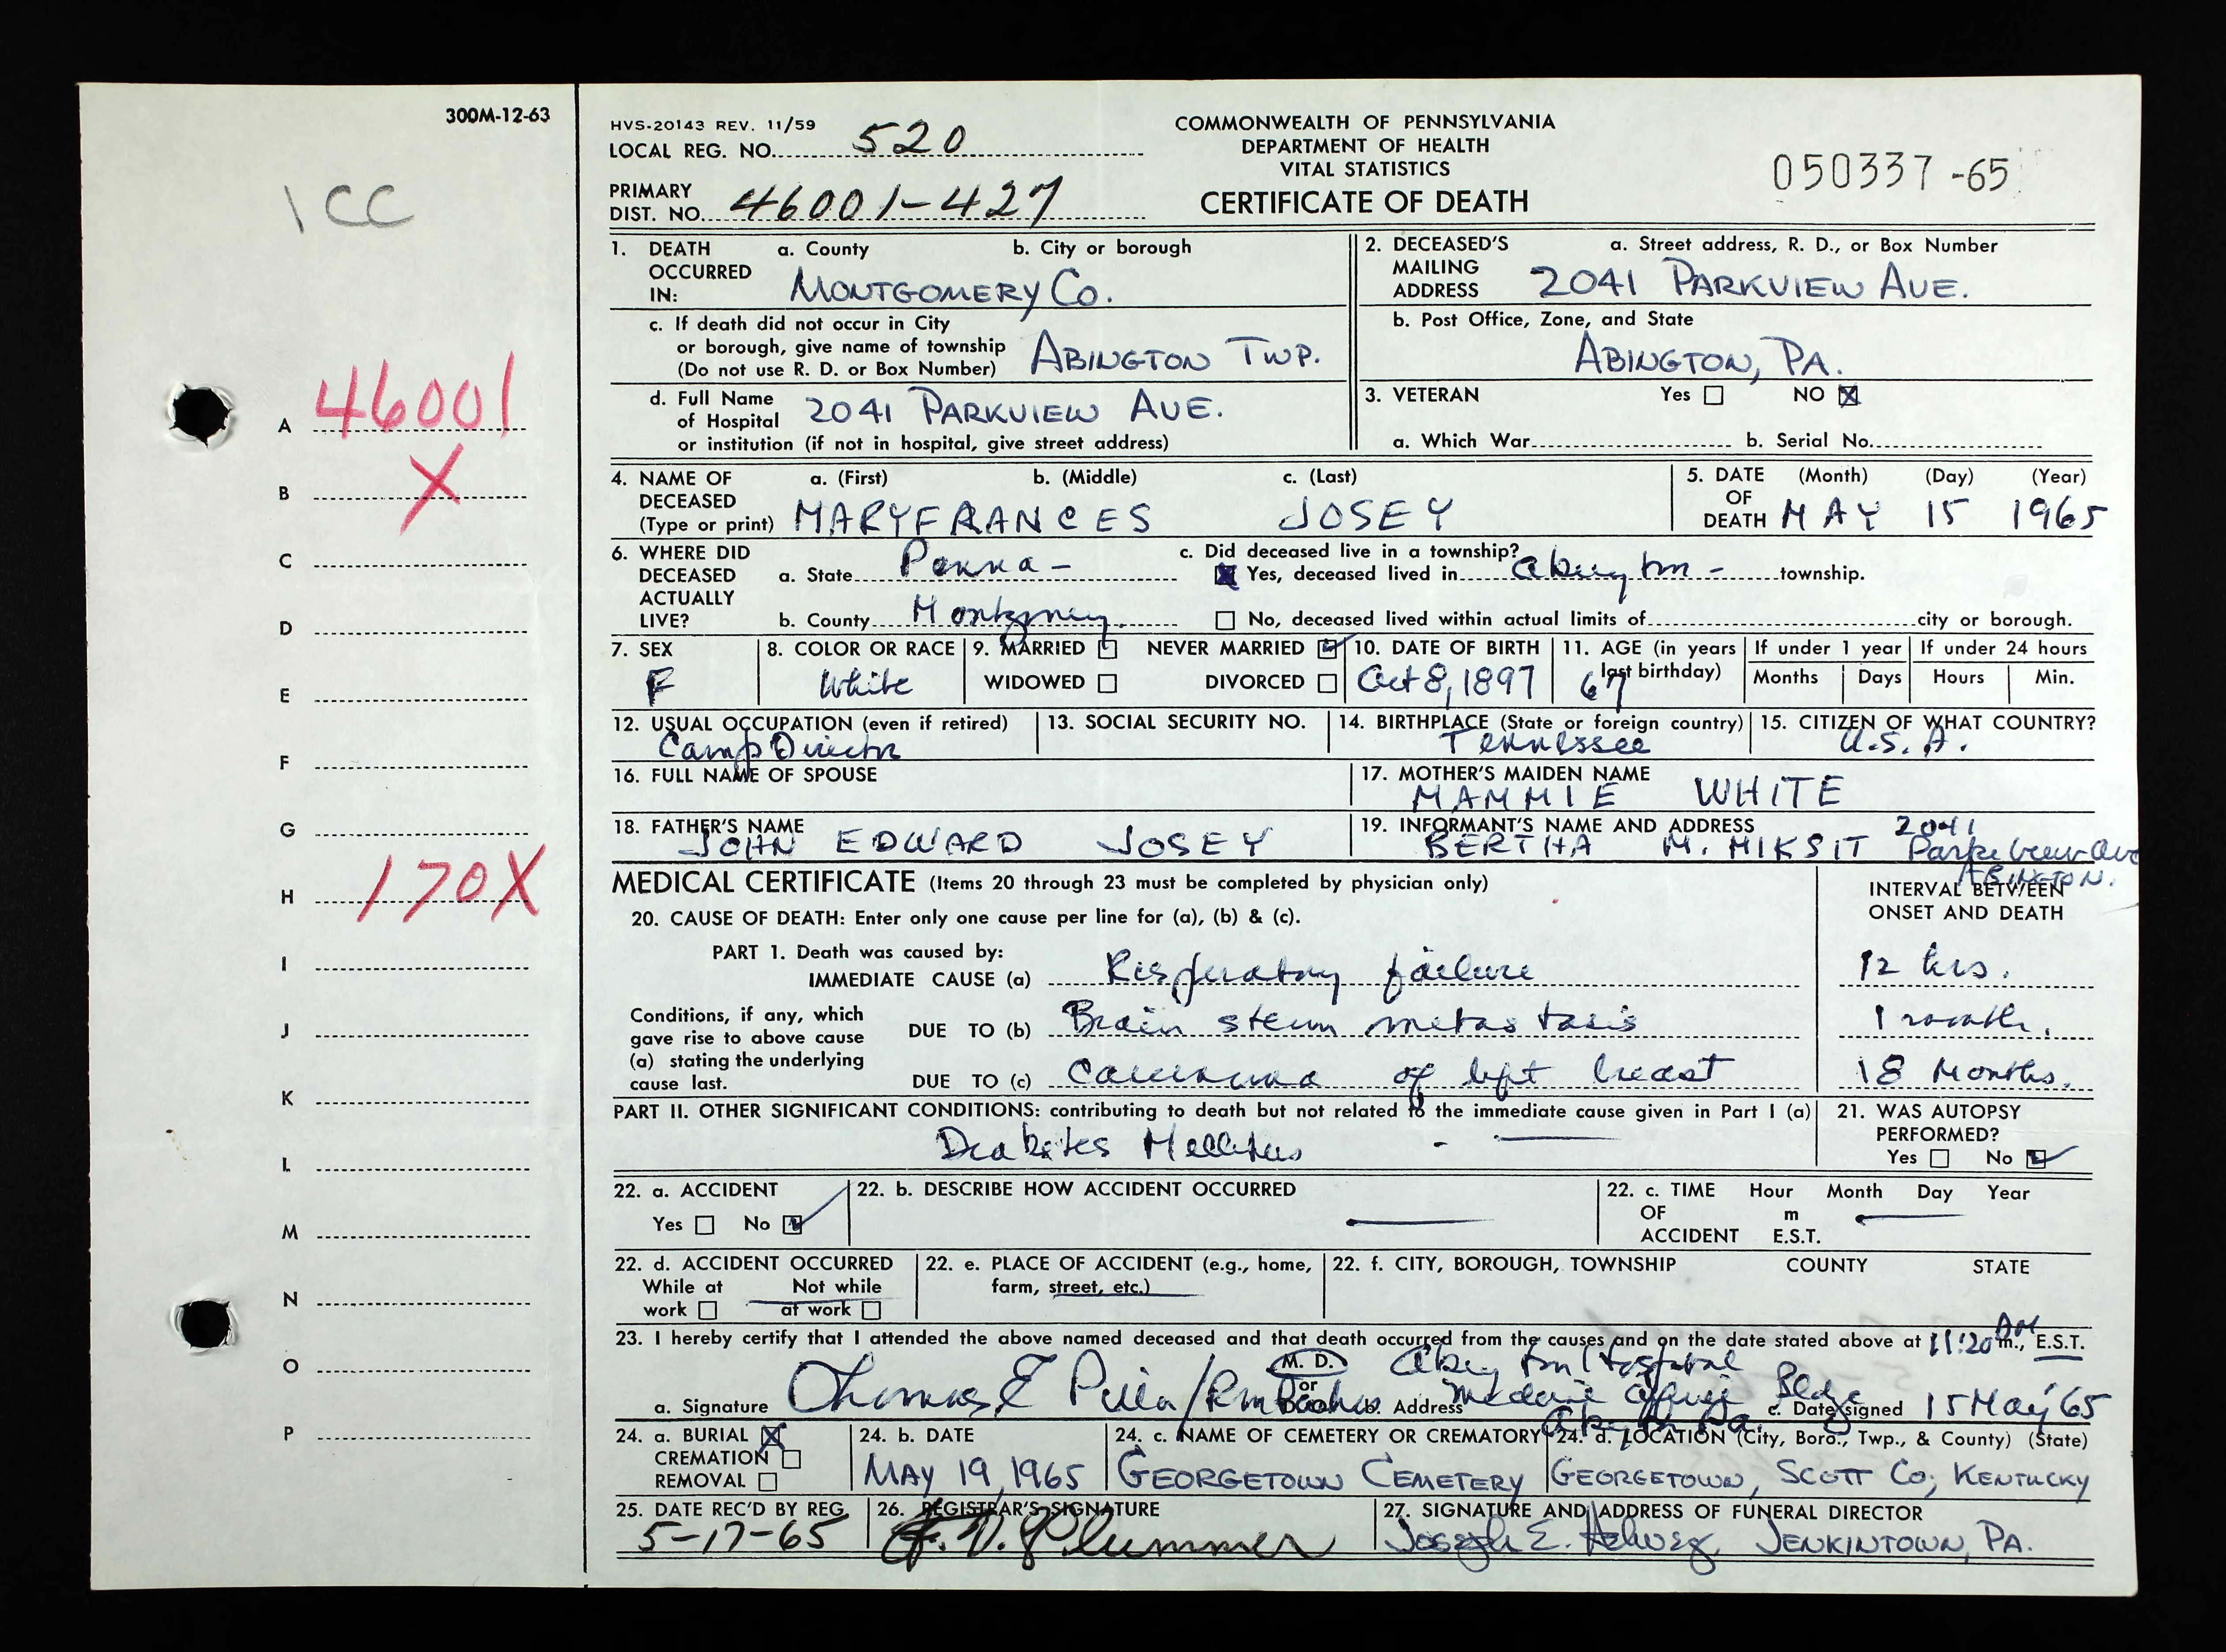 300M-12-63
1 CC
A 46001
B X
C
D
E
F
G
H 170X
I
J
K
L
M
N
O
P
HVS-20143 REV. 11/59
LOCAL REG. NO. 520
PRIMARY
DIST. NO. 46001-427
COMMONWEALTH OF PENNSYLVANIA
DEPARTMENT OF HEALTH
VITAL STATISTICS
CERTIFICATE OF DEATH
050337-65
1. DEATH OCCURRED IN: a. County b. City or borough
MONTGOMERY CO.
c. If death did not occur in City
or borough, give name of township
(Do not use R. D. or Box Number) ABINGTON TWP.
d. Full Name
of Hospital 2041 PARKVIEW AVE.
or institution (if not in hospital, give street address)
2. DECEASED'S MAILING ADDRESS a. Street address, R. D., or Box Number
2041 PARKVIEW AVE.
b. Post Office, Zone, and State
ABINGTON, PA.
3. VETERAN Yes NO X
a. Which War b. Serial No.
4. NAME OF DECEASED (Type or print) a. (First) b. (Middle) c. (Last)
MARYFRANCES JOSEY
5. DATE OF DEATH (Month) (Day) (Year)
MAY 15 1965
6. WHERE DID DECEASED ACTUALLY LIVE?
a. State Penna-
b. County Montgomery.
c. Did deceased live in a township?
X Yes, deceased lived in Abington - township.
No, deceased lived within actual limits of city or borough.
7. SEX
F
8. COLOR OR RACE
White
9. MARRIED NEVER MARRIED
WIDOWED DIVORCED
10. DATE OF BIRTH
Oct 8, 1897
11. AGE (in years last birthday)
67
If under 1 year
Months Days
If under 24 hours
Hours Min.
12. USUAL OCCUPATION (even if retired)
Camp Director
13. SOCIAL SECURITY NO.
14. BIRTHPLACE (State or foreign country)
Tennessee
15. CITIZEN OF WHAT COUNTRY?
U.S.A.
16. FULL NAME OF SPOUSE
17. MOTHER'S MAIDEN NAME
MAMMIE WHITE
18. FATHER'S NAME
JOHN EDWARD JOSEY
19. INFORMANT'S NAME AND ADDRESS
BERTHA M. MIKSIT 2041
Parkview Ave
ABINGTON.
MEDICAL CERTIFICATE (Items 20 through 23 must be completed by physician only)
INTERVAL BETWEEN
ONSET AND DEATH
20. CAUSE OF DEATH: Enter only one cause per line for (a), (b) & (c).
PART 1. Death was caused by:
IMMEDIATE CAUSE (a) Respiratory failure 12 hrs.
Conditions, if any, which
gave rise to above cause
(a) stating the underlying
cause last.
DUE TO (b) Brain stem metastasis 1 month.
DUE TO (c) Carcinoma of left breast 18 Months.
PART II. OTHER SIGNIFICANT CONDITIONS: contributing to death but not related to the immediate cause given in Part I (a)
Diabetes Mellitus
21. WAS AUTOPSY
PERFORMED?
Yes No
22. a. ACCIDENT
Yes No
22. b. DESCRIBE HOW ACCIDENT OCCURRED
22. c. TIME OF ACCIDENT Hour Month Day Year
m
E.S.T.
22. d. ACCIDENT OCCURRED
While at work Not while at work
22. e. PLACE OF ACCIDENT (e.g., home,
farm, street, etc.)
22. f. CITY, BOROUGH, TOWNSHIP COUNTY STATE
23. I hereby certify that I attended the above named deceased and that death occurred from the causes and on the date stated above at 11:20 AM m., E.S.T.
a. Signature Thomas E M. D. or
b. Address Abington Hospital
Medical Office Bldg
Abington Pa.
c. Date signed 15 May '65
24. a. BURIAL X
CREMATION
REMOVAL
24. b. DATE
MAY 19, 1965
24. c. NAME OF CEMETERY OR CREMATORY
GEORGETOWN CEMETERY
24. d. LOCATION (City, Boro., Twp., & County) (State)
GEORGETOWN, SCOTT CO; KENTUCKY
25. DATE REC'D BY REG.
5-17-65
26. REGISTRAR'S SIGNATURE
Plummer
27. SIGNATURE AND ADDRESS OF FUNERAL DIRECTOR
Joseph E. JENKINTOWN, PA.